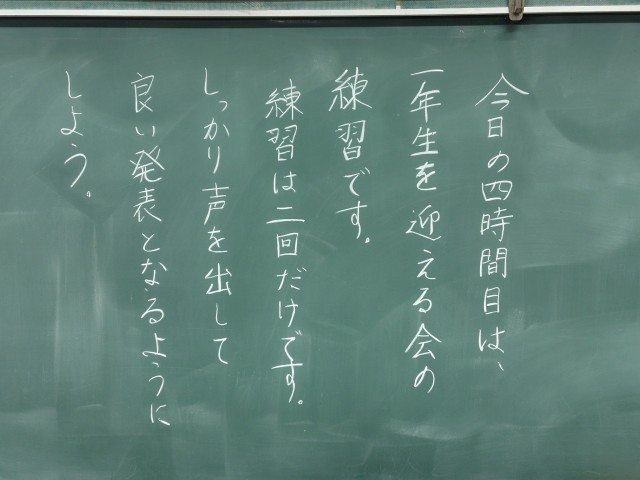 今日の四時間目は、
一年生を迎える会の
練習です。
練習は二回だけです。
しっかり声を出して
良い発表となるように
しよう。